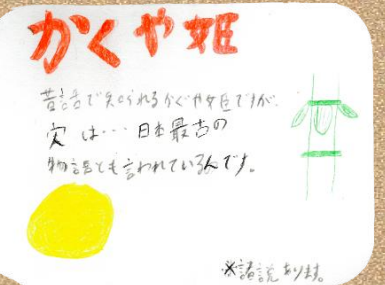 かくや姫
昔話で知られるかぐや姫ですが、
実は…日本最古の
物語とも言われているんです。
※諸説あります。